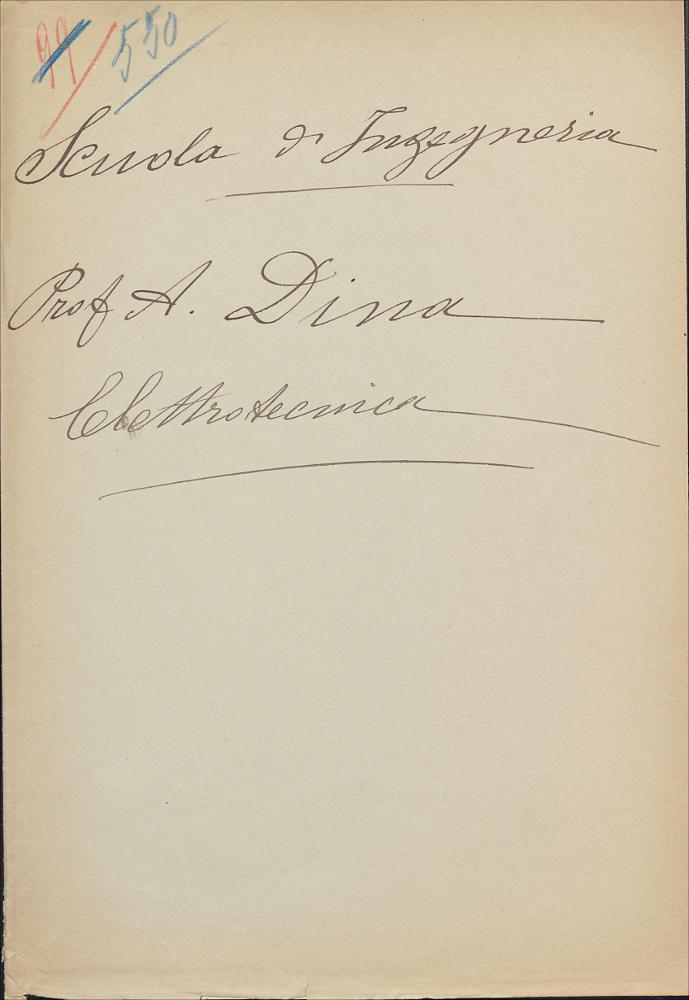 99/ 550
Scuola di Ingegneria
Prof A. Dina
Elettrotecnica